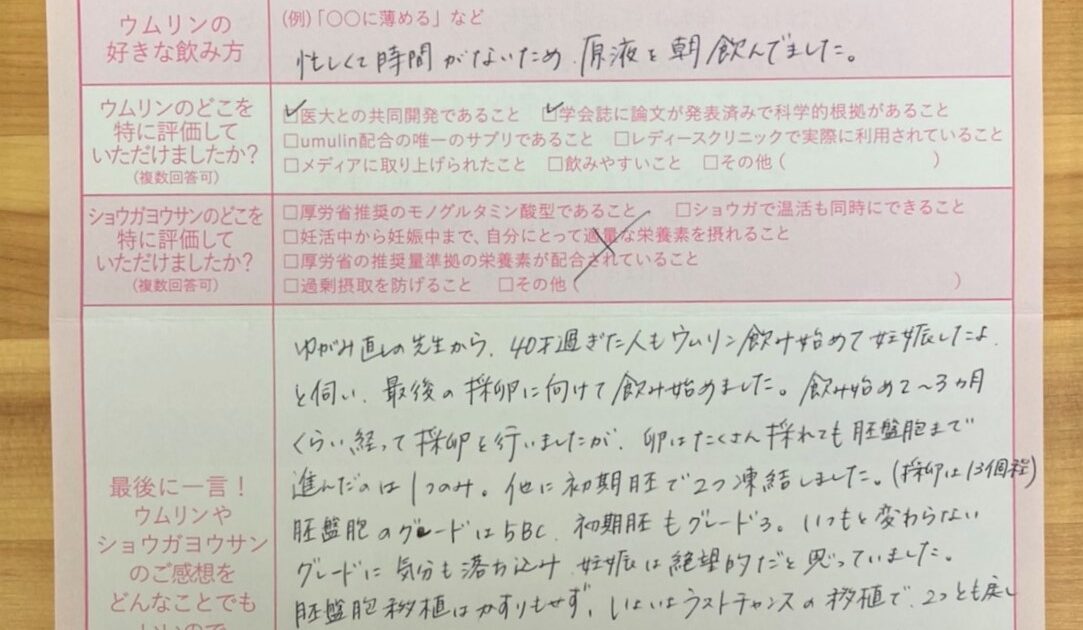 ウムリンの
好きな飲み方
(例)「〇〇に薄める」など
忙しくて時間がないため、原液を朝飲んでました。
ウムリンのどこを
特に評価して
いただけましたか?
(複数回答可)
☑医大との共同開発であること ☑学会誌に論文が発表済みで科学的根拠があること
□umulin配合の唯一のサプリであること □レディースクリニックで実際に利用されていること
□メディアに取り上げられたこと □飲みやすいこと □その他( )
ショウガヨウサンのどこを
特に評価して
いただけましたか?
(複数回答可)
□厚労省推奨のモノグルタミン酸型であること □ショウガで温活も同時にできること
□妊活中から妊娠中まで、自分にとって適量な栄養素を摂れること
□厚労省の推奨量準拠の栄養素が配合されていること
□過剰摂取を防げること □その他( )
最後に一言!
ウムリンや
ショウガヨウサン
のご感想を
どんなことでも
いいので
ゆがみ直しの先生から、40才過ぎた人もウムリン飲み始めて妊娠したよ、
と伺い、最後の採卵に向けて飲み始めました。飲み始めて~3ヵ月
くらい経って採卵を行いましたが、卵はたくさん採れても胚盤胞まで
進んだのは1つのみ。他に初期胚で2つ凍結しました。(採卵は13個程)
胚盤胞のグレードは5BC、初期胚もグレード3。いつもと変わらない
グレードに気分も落ち込み、妊娠は絶望的だと思っていました。
胚盤胞移植はかすりもせず、いよいよラストチャンスの移植で、2つとも戻し